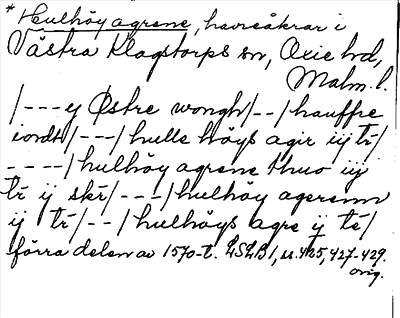 * Hulhöy agrene, havreåkrar i
Västra Klagstorps sn, Oxie hd,
Malm. l.
/---ey Østre wongh/--/hauffre
iordh/---/hulle höys agir iij tr/
----/hulhöy agrene thuo iij
tr ij skr/---/hulhöy agerenn
ij tr/--/hulhöys agre ij te/
förra delen av 1570-t. LSLB 1, ss. 425, 427-429.
orig.